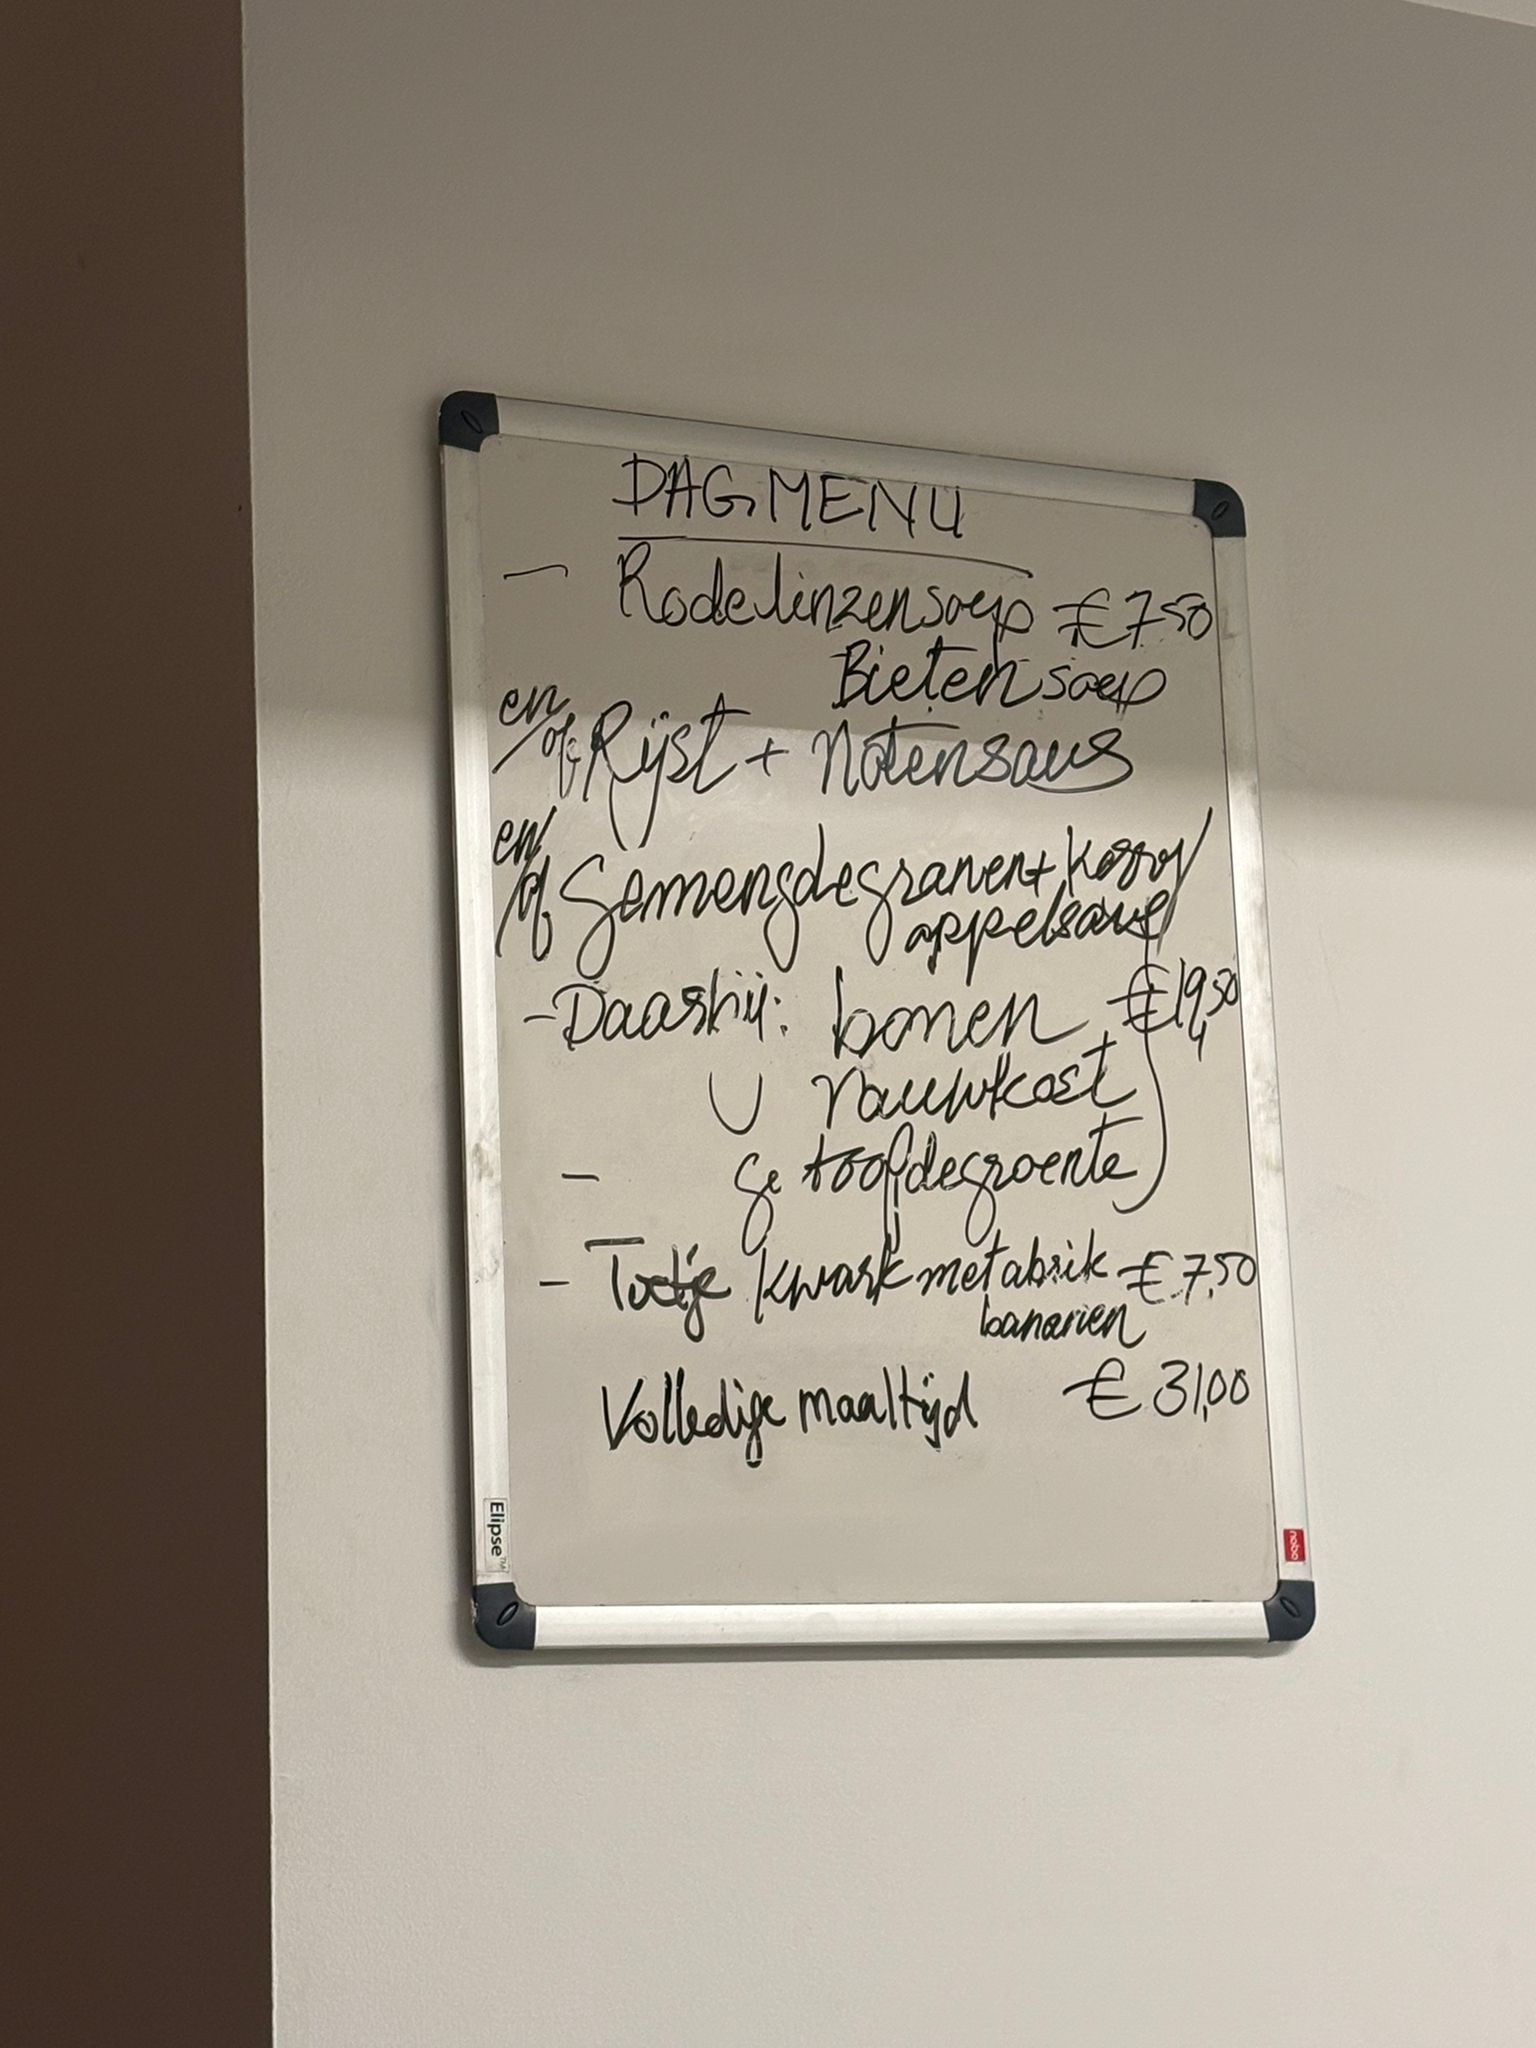 DAGMENU
- Rodelinzensoep €7.50
Bietensoep
en/of Rijst + Notensaus
en/of Gemengdegranen +
appelsaus
- Daarbij: bonen €19,50
U rauwkost
- Gestoofdegroente
- Toetje Kwark met abrik €7,50
bananen
Volledige maaltijd €31,00
Elipse™
nobo